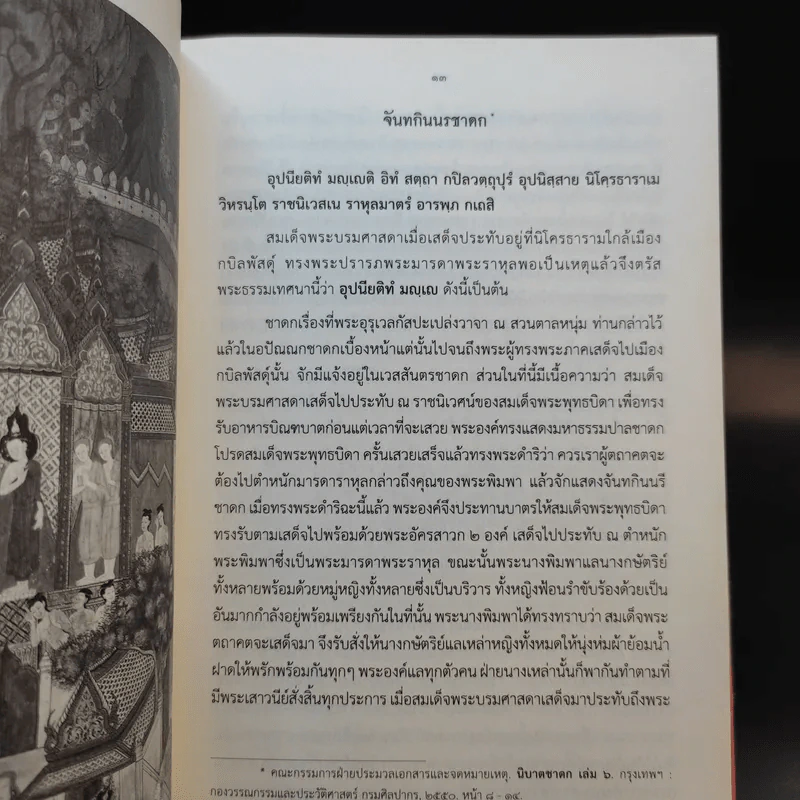 ๑๓
จันทกินนรชาดก*
อุปนียติทํ มญฺเญติ อิทํ สตฺถา กปิลวตฺถุปุรํ อุปนิสฺสาย นิโคฺรธาราเม
วิหรนฺโต ราชนิเวสเน ราหุลมาตรํ อารพฺภ กเถสิ
สมเด็จพระบรมศาสดาเมื่อเสด็จประทับอยู่ที่นิโครธารามใกล้เมือง
กบิลพัสดุ์ ทรงพระปรารภพระมารดาพระราหุลพอเป็นเหตุแล้วจึงตรัส
พระธรรมเทศนานี้ว่า อุปนียติทํ มญฺเญ ดังนี้เป็นต้น
ชาดกเรื่องที่พระอุรุเวลกัสปะเปล่งวาจา ณ สวนตาลหนุ่ม ท่านกล่าวไว้
แล้วในอปัณณกชาดกเบื้องหน้าแต่นั้นไปจนถึงพระผู้ทรงพระภาคเสด็จไปเมือง
กบิลพัสดุ์นั้น จักมีแจ้งอยู่ในเวสสันตรชาดก ส่วนในที่นี้มีเนื้อความว่า สมเด็จ
พระบรมศาสดาเสด็จไปประทับ ณ ราชนิเวศน์ของสมเด็จพระพุทธบิดา เพื่อทรง
รับอาหารบิณฑบาตก่อนแต่เวลาที่จะเสวย พระองค์ทรงแสดงมหาธรรมปาลชาดก
โปรดสมเด็จพระพุทธบิดา ครั้นเสวยเสร็จแล้วทรงพระดำริว่า ควรเราผู้ตถาคตจะ
ต้องไปตำหนักมารดาราหุลกล่าวถึงคุณของพระพิมพา แล้วจักแสดงจันทกินนรี
ชาดก เมื่อทรงพระดำริฉะนี้แล้ว พระองค์จึงประทานบาตรให้สมเด็จพระพุทธบิดา
ทรงรับตามเสด็จไปพร้อมด้วยพระอัครสาวก ๒ องค์ เสด็จไปประทับ ณ ตำหนัก
พระพิมพาซึ่งเป็นพระมารดาพระราหุล ขณะนั้นพระนางพิมพาแลนางกษัตริย์
ทั้งหลายพร้อมด้วยหมู่หญิงทั้งหลายซึ่งเป็นบริวาร ทั้งหญิงฟ้อนรำขับร้องด้วยเป็น
อันมากกำลังอยู่พร้อมเพรียงกันในที่นั้น พระนางพิมพาได้ทรงทราบว่า สมเด็จพระ
ตถาคตจะเสด็จมา จึงรับสั่งให้นางกษัตริย์แลเหล่าหญิงทั้งหมดให้นุ่งห่มผ้าย้อมน้ำ
ฝาดให้พรักพร้อมกันทุกๆ พระองค์แลทุกตัวคน ฝ่ายนางเหล่านั้นก็พากันทำตามที่
มีพระเสาวนีย์สั่งสิ้นทุกประการ เมื่อสมเด็จพระบรมศาสดาเสด็จมาประทับถึงพระ
* คณะกรรมการฝ่ายประมวลเอกสารและจดหมายเหตุ. นิบาตชาดก เล่ม ๖. กรุงเทพฯ :
กองวรรณกรรมและประวัติศาสตร์ กรมศิลปากร, ๒๕๕๐. หน้า ๘ - ๑๔.